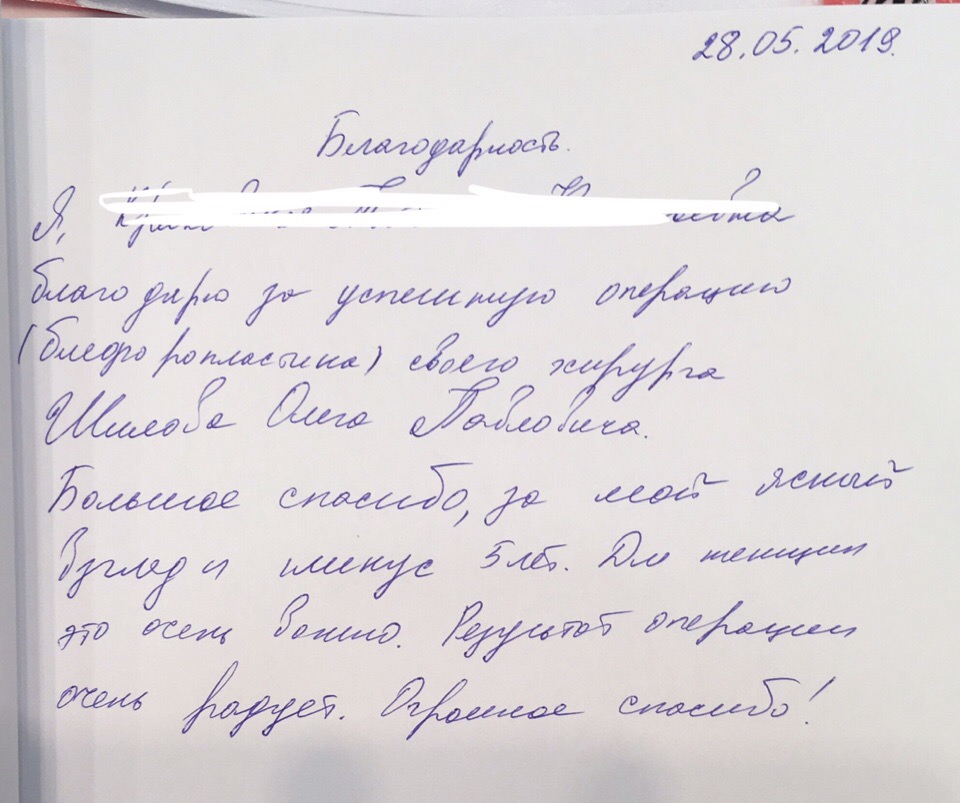 28.05.2019.
Благодарность.
Я,
благодарю за успешную операцию
(блефоропластика) своего хирурга
Шилова Олега Павловича.
Большое спасибо, за мой ясный
взгляд и минус 5 лет. Для женщин
это очень важно. Результат операции
очень радует. Огромное спасибо!